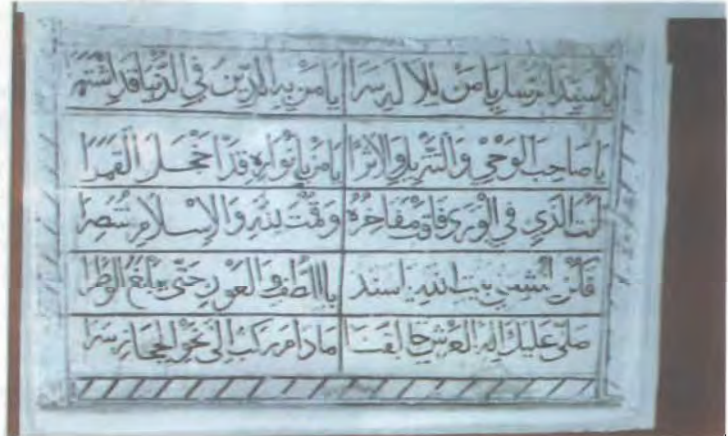 يا سيد الرسل يا من للإله سرا يا من به الدين في الدنيا قد اشتهرا
يا صاحب الوحي والتنزيل والأثرا يا من بأنواره قد أخجل القمرا
أنت الذي في الورى فاقت مفاخره وقمت لله والإسلام منتصرا
باللطف والعون حتى يبلغ الوطرا
صلى عليك إله العرش خالقنا مادام ركب إلى نحو الحجاز سرا